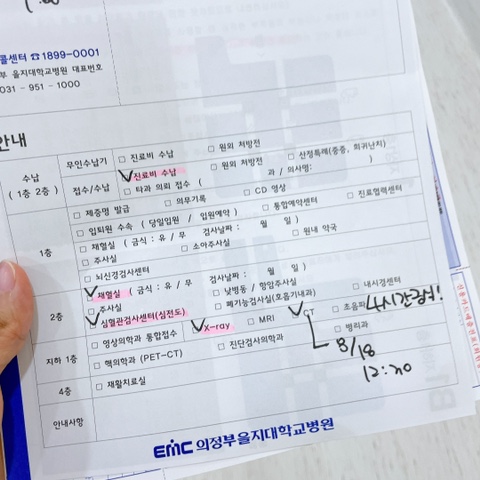 콜센터 ☎1899-0001
부 을지대학교병원 대표번호
031 - 951 - 1000
안내
수납
( 1층 2층 )
무인수납기
□ 진료비 수납
□ 원외 처방전
접수/수납
✓진료비 수납
□ 원외 처방전
□ 산정특례(중증, 희귀난치)
□ 타과 의뢰 접수 (
과 / 의사명:
)
1층
□ 제증명 발급
□ 의무기록
□ CD 영상
□ 진료협력센터
□ 입퇴원 수속 ( 당일입원 / 입원예약 )
□ 통합예약센터
□ 채혈실 ( 금식 : 유 / 무
검사날짜 :
월
일 )
□ 원내 약국
□ 주사실
□ 소아주사실
□ 뇌신경검사센터
2층
✓채혈실 ( 금식 : 유 / 무
검사날짜 :
월
일 )
□ 주사실
□ 낮병동 / 항암주사실
□ 내시경센터
✓심혈관검사센터(심전도)
□ 폐기능검사실(호흡기내과)
지하 1층
□ 영상의학과 통합접수
✓X-ray
□ MRI
✓CT
□ 초음파
4시간금식!
□ 핵의학과 (PET-CT)
□ 진단검사의학과
□ 병리과
8/18
12:20
4층
□ 재활치료실
안내사항
EMC 의정부을지대학교병원